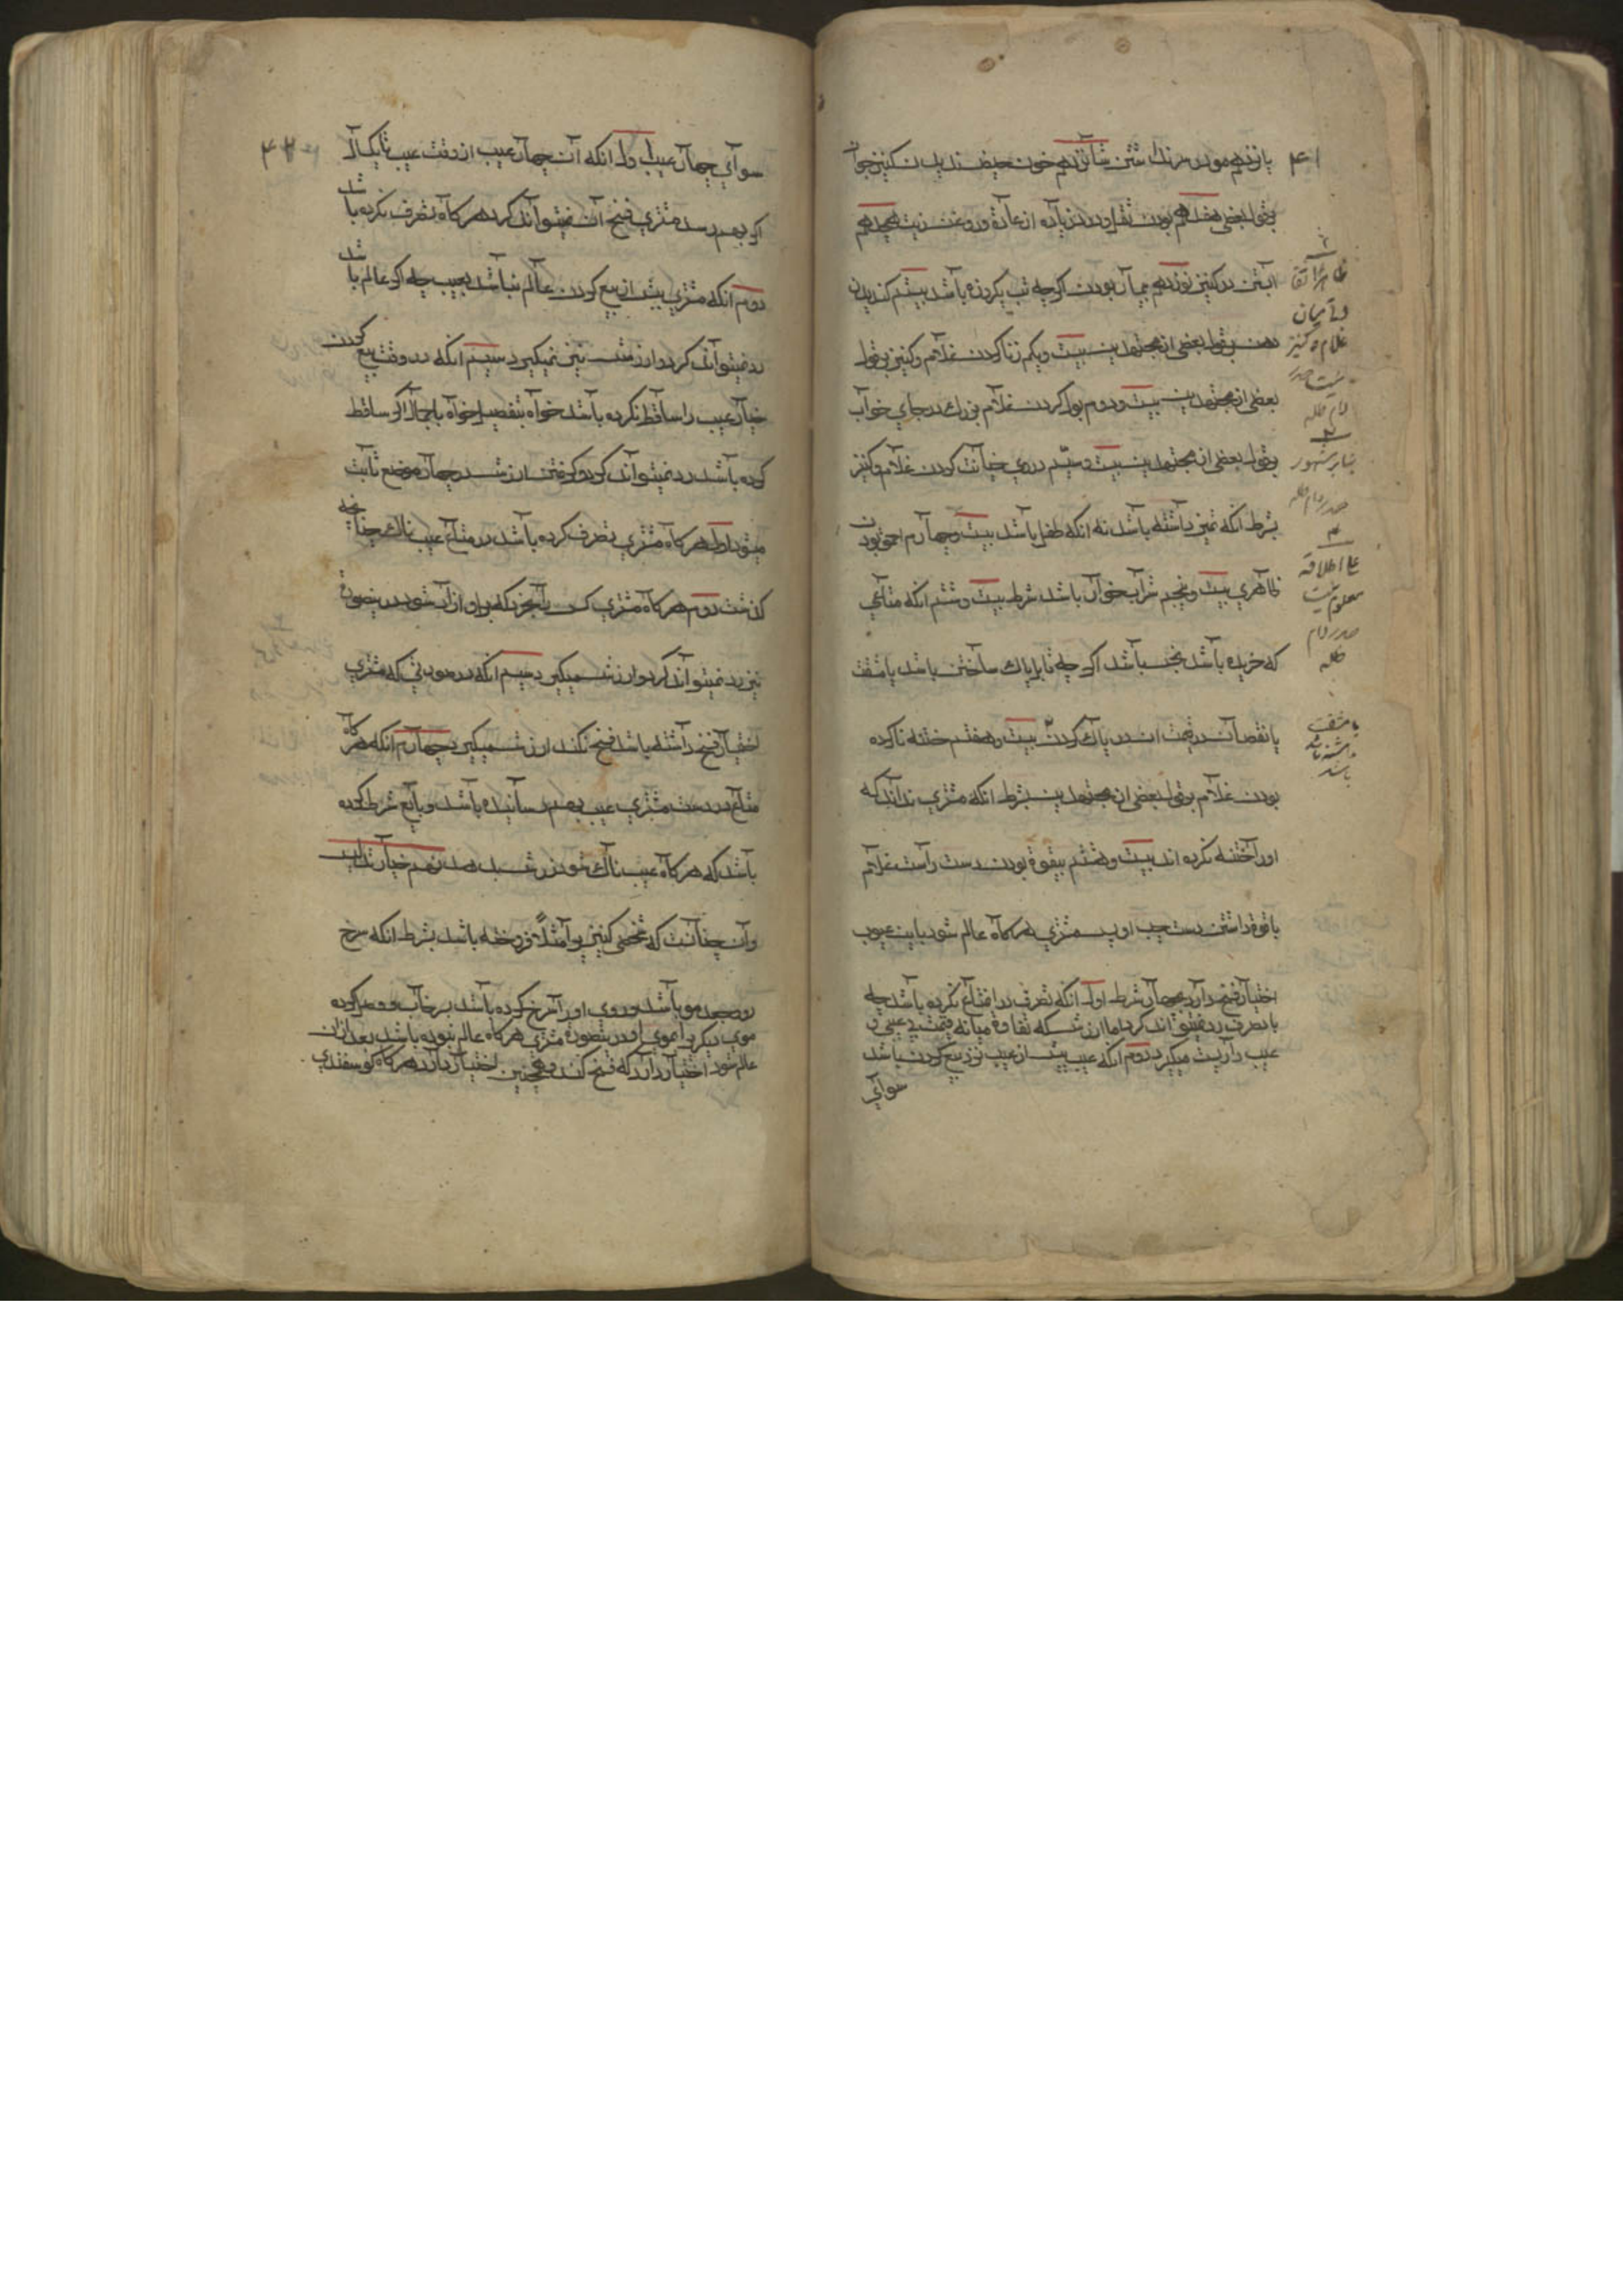 پانزدهم مو در زهار نداشتن شانزدهم خون حیض ندیدن کنیز جوان
بقول بعضی هفدهم بودن ثفل و درد زیاده از عادة در روغن زیت هیجدهم
آبستن در کنیز نوزدهم بیمار بودن اگرچه تب یکروزه باشد بیستم کندیدن
دهن بقول بعضی از مجتهدین بیست و یکم زنا کردن غلام و کنیز بقول
بعضی از مجتهدین بیست و دوم بول کردن غلام بزرك در جای خواب
بقول بعضی از مجتهدین بیست و سیّم دزدی خیانت کردن غلام و کنیز
بشرط آنکه تمیز داشته باشد نه آنکه طفل باشد بیست و چهارم احمق بودن
ظاهری بیست و پنجم شراب خوار باشد شرط بیست و ششم آنکه متاعی
که خریده باشد نجس باشد اگرچه قابل پاك ساختن باشد با مشقت
یا نقصان در قیمت آن در پاك کردن بیست و هفتم ختنه ناکرده
بودن غلام بقول بعضی از مجتهدین بشرط آنکه مشتری نداند که
او را ختنه نکرده اند بیست و هشتم بیقوة بودن دست راست غلام
با قوة داشتن دست چپ او پس مشتری هرگاه عالم شود باین عیوب
اختیار فسخ دارد بچهار شرط اول آنکه تصرف در متاع نکرده باشد چه
با تصرف رد نمیتواند کرد اما ارش که تفاوة میانه قیمت بی عیبی و
عیب دار است میگیرد دوم آنکه عیب پیش از عیب نزد بیع کردن باشد
سوای
۴۱
ظاهرا
غلام و کنیز
دام ظله
بنابر مشهور
دام ظله
علی اطلاقه
معلوم نیست
دام
ظله
یا مشقت
داشته
باشد
سوای چهار عیب اول آنکه آن چهار عیب از وقت عیب تا یکسال
اگر بهم رسد مشتری فسخ آن میتواند کرد هرگاه تصرف نکرده باشد
دوم آنکه مشتری پیش از بیع کردن عالم نباشد بعیب چه اگر عالم باشد
رد نمیتواند کرد و ارش نیز نمیگیرد سیم آنکه در وقت بیع کردن
خیار عیب را ساقط نکرده باشد خواه بتفصیل خواه باجمال اگر ساقط
کرده باشد رد نمیتواند کرد و گرفتن ارش در چهار موضع ثابت
میشود اول هرگاه مشتری تصرف کرده باشد در متاع عیب ناك چنانچه
گذشت دوم هرگاه مشتری کسی را بخرد که بر او آزاد شود درینصورة
نیز رد نمیتواند کرد و ارش میگیرد سیم آنکه در صورتی که مشتری
اختیار فسخ داشته باشد فسخ نکند ارش میگیرد چهارم آنکه هرگاه
متاع در دست مشتری عیب بهم رسانیده باشد و بایع شرط کرده
باشد که هرگاه عیب ناك شود ارش بدهد نهم خیار تدلیس
و آن چنانست که شخصی کنیزی را مثلا فروخته باشد بشرط آنکه سرخ
رو و جعد مو باشد و روی او را سرخ کرده باشد بسرخاب و وصل کرده
موی دیگر را بموی او در ینصورة مشتری هرگاه عالم نبوده باشد بعد از آن
عالم شود اختیار دارد که فسخ کند و همچنین اختیار دارد هرگاه گوسفندی